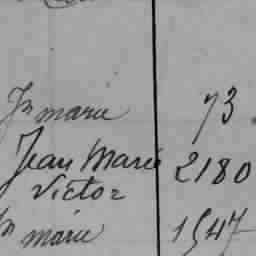 Jn marie 73
Jean Marie 2180
Victor
Jn marie 1547